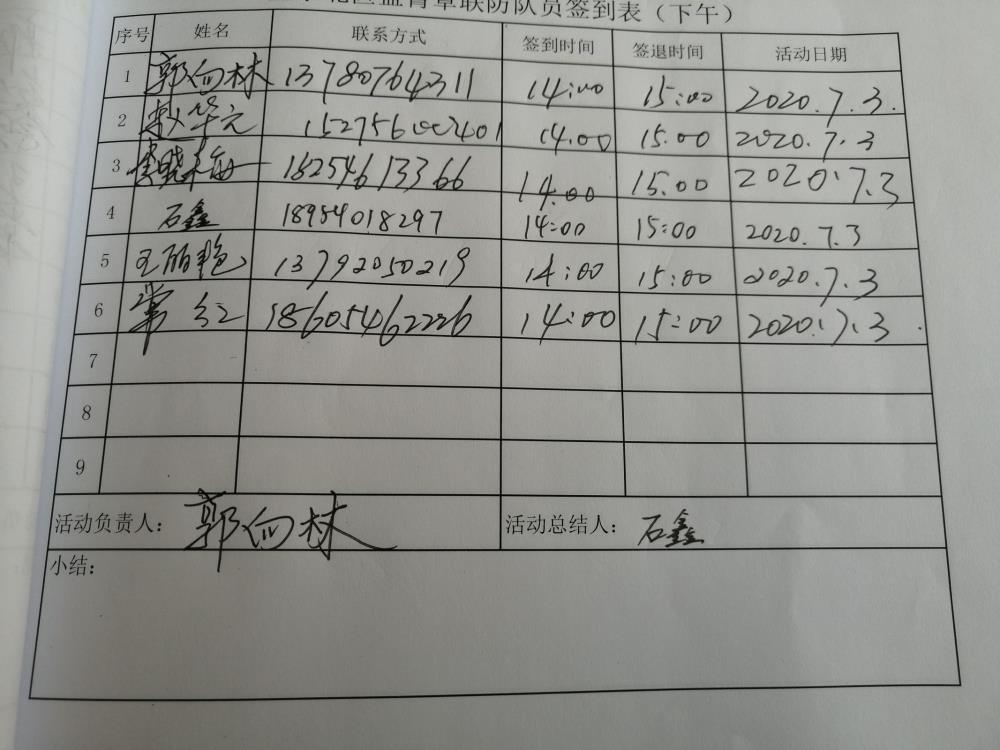 联防队员签到表（下午）
序号 姓名 联系方式 签到时间 签退时间 活动日期
1 郭向林 13780764311 14:00 15:00 2020.7.3.
2 华元 15275600401 14.00 15.00 2020.7.3
3 李晓梅 18254613366 14.00 15.00 2020.7.3
4 石鑫 18954018297 14:00 15:00 2020.7.3
5 王丽艳 13792050219 14:00 15:00 2020.7.3
6 常红 18605462226 14:00 15:00 2020.7.3.
7
8
9
活动负责人： 郭向林 活动总结人： 石鑫
小结：